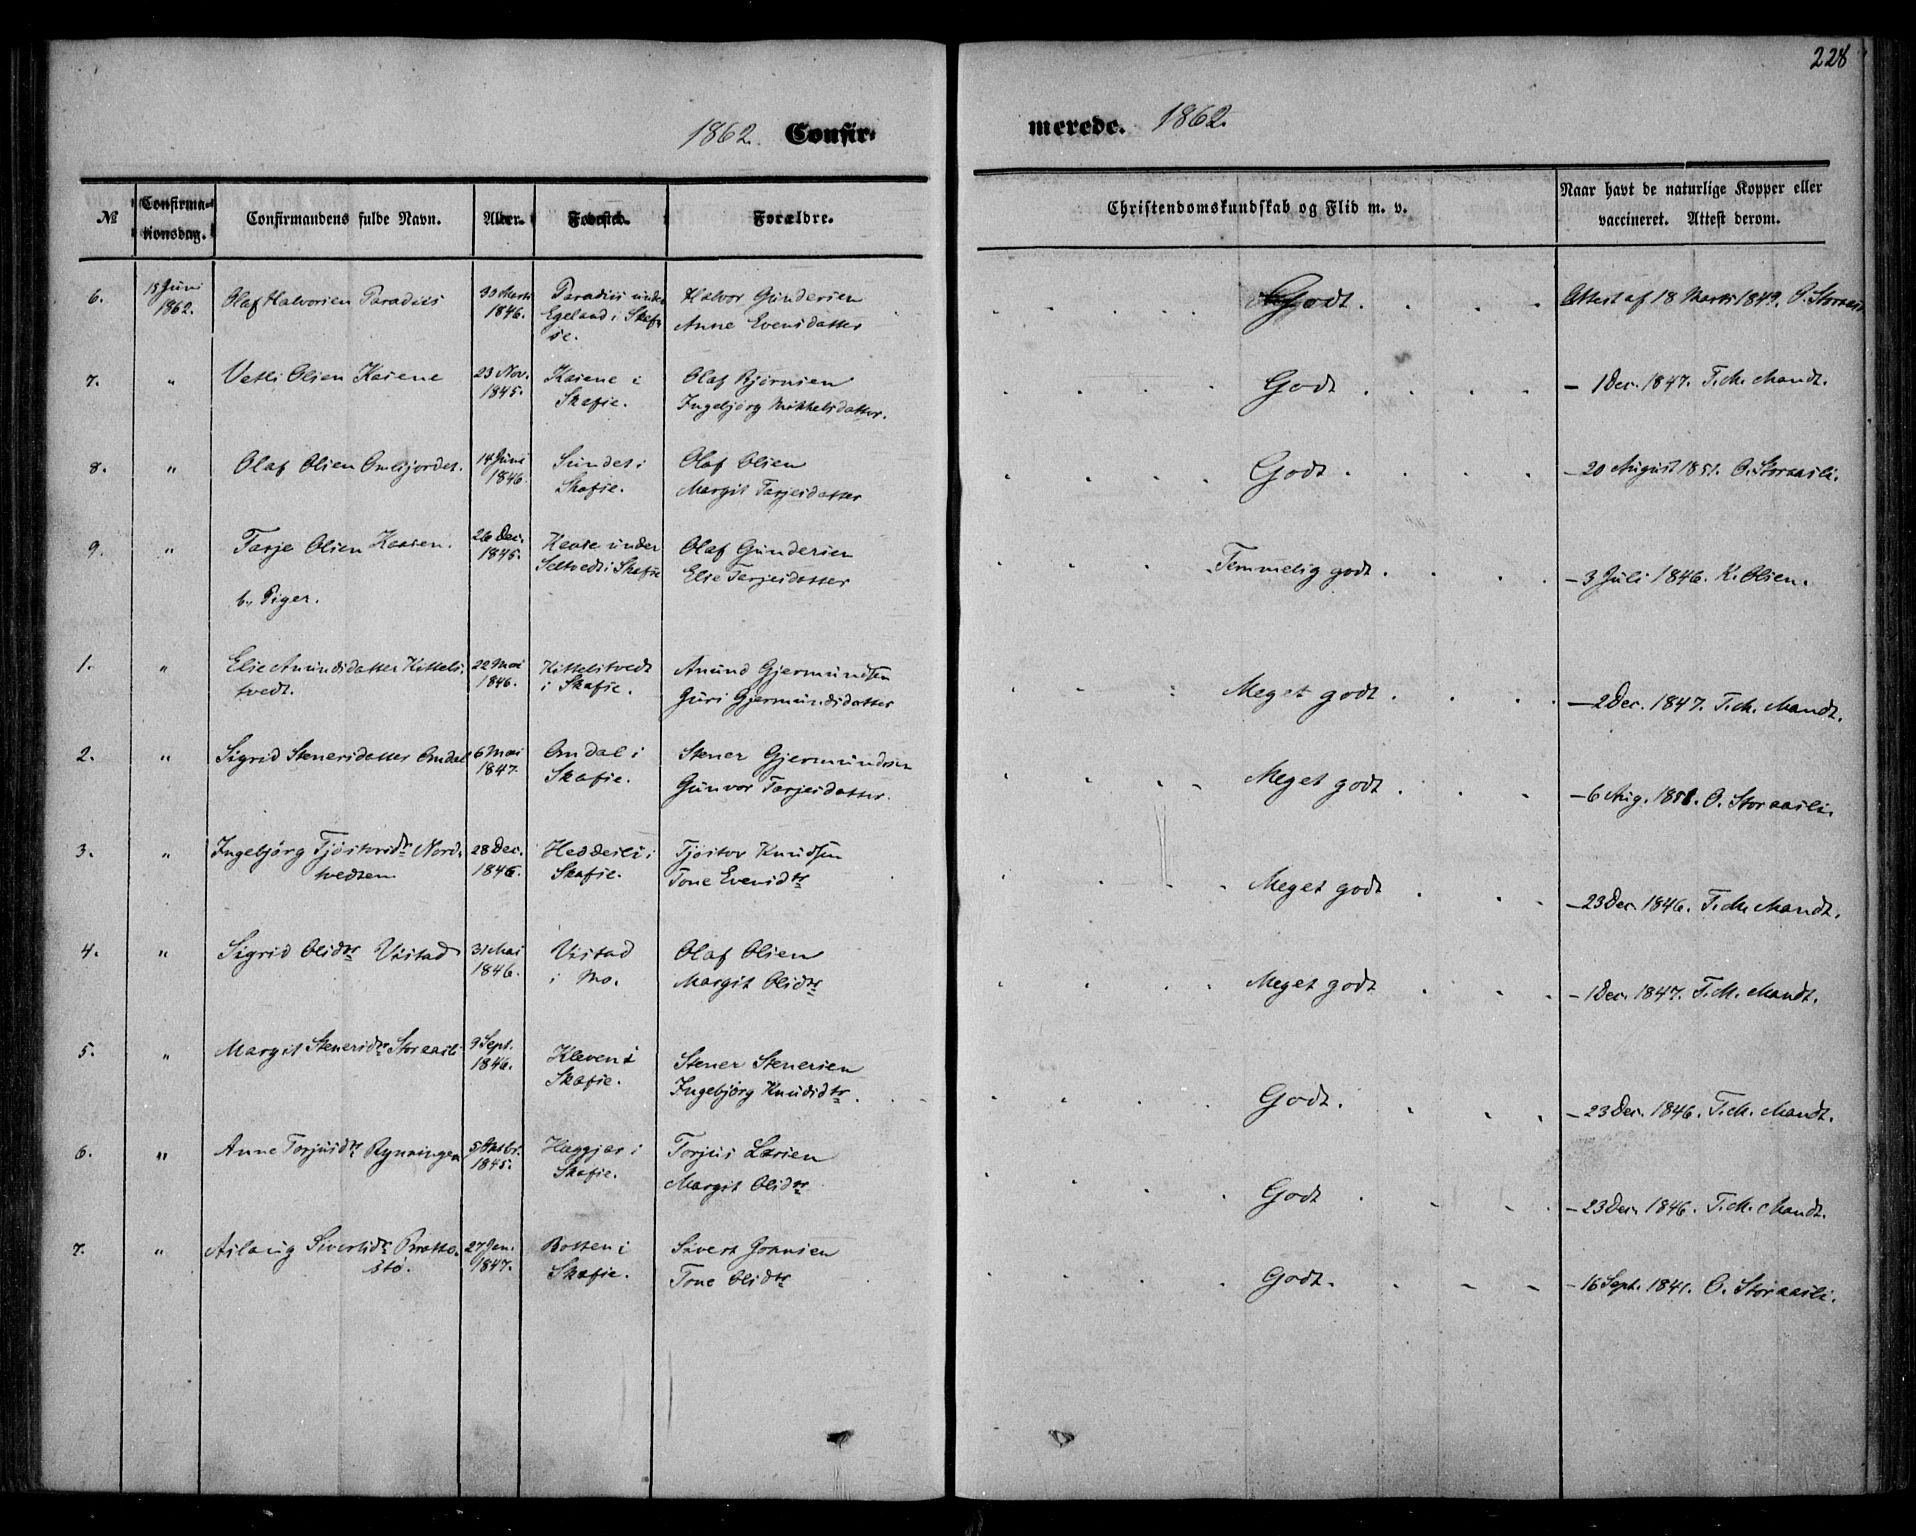 228
1862. Confir-
merede. 1862.
№
Confirma-
tionsdag.
Confirmandens fulde Navn.
Alder.
Fødested.
Forældre.
Christendomskundskab og Flid m. v.
Naar havt de naturlige Kopper eller
vaccineret. Attest derom.
6. 15 Juni Olaf Halvorsen Paradiis 30 Marts Paradiis under Halvor Gundersen Godt. Attest af 18 Marts 1849. O. Storaasli
1862. 1846. Egeland i Skaf- Anne Evensdatter
se.
7. " Vetli Olsen Kasene 23 Nov. Kasene i Olaf Bjørnsen Godt - 1 Dec. 1847. T. M. Mandt.
1845. Skafse. Ingebjørg Mikkelsdatter.
8. " Olaf Olsen Omlifjordet. 14 Juni Sundet i Olaf Olsen Godt - 20 August 1851. O. Storaasli.
1846. Skafse. Margit Tarjesdatter
9. " Tarje Olsen Haasen. 26 Dec. Haase under Olaf Gundersen Temmelig godt. - 3 Juli 1846. K. Olsen.
1845. Seltvedt i Skafse Elie Tarjesdatter
b. Piger.
1. " Elie Anundsdatter Kittels- 22 Mai Kittelstvedt Anund Gjermundsen Meget godt. - 2 Dec. 1847. T. M. Mandt.
tvedt. 1846. i Skafse. Guri Gjermundsdatter
2. " Sigrid Stenersdatter Omdal 6 Mai Omdal i Stener Gjermundsen Meget godt. - 6 Aug. 1851. O. Storaasli.
1847. Skafse. Gunvor Tarjesdatter.
3. " Ingebjørg Tjøstovsdr Nord- 28 Dec. Heddeili i Tjøstov Knudsen Meget godt - 23 Dec. 1846. T. M. Mandt.
tvedten 1845. Skafse. Tone Evensdtr
4. " Sigrid Olsdtr Vistad 31 Mai Vistad Olaf Olsen Meget godt - 1 Dec. 1847. T. M. Mandt.
1846. i Mo. Margit Olsdtr
5. " Margit Stenersdr Storaasli 9 Sept. Kleven i Stener Stenersen Godt. - 23 Dec. 1846. T. M. Mandt.
1846. Skafse. Ingebjørg Knudsdtr.
6. " Anne Torjusdr Rynningen 5 Octbr. Haggjer i Torjus Larsen Godt - 23 Dec. 1846. T. M. Mandt.
1845. Skafse. Margit Olsdtr
7. " Aslaug Sivertsdr Bratte- 27 Jan. Botten i Sivert Johnsen Godt. - 16 Sept. 1841. O. Storaasli.
stø. 1847. Skafse. Tone Olsdtr